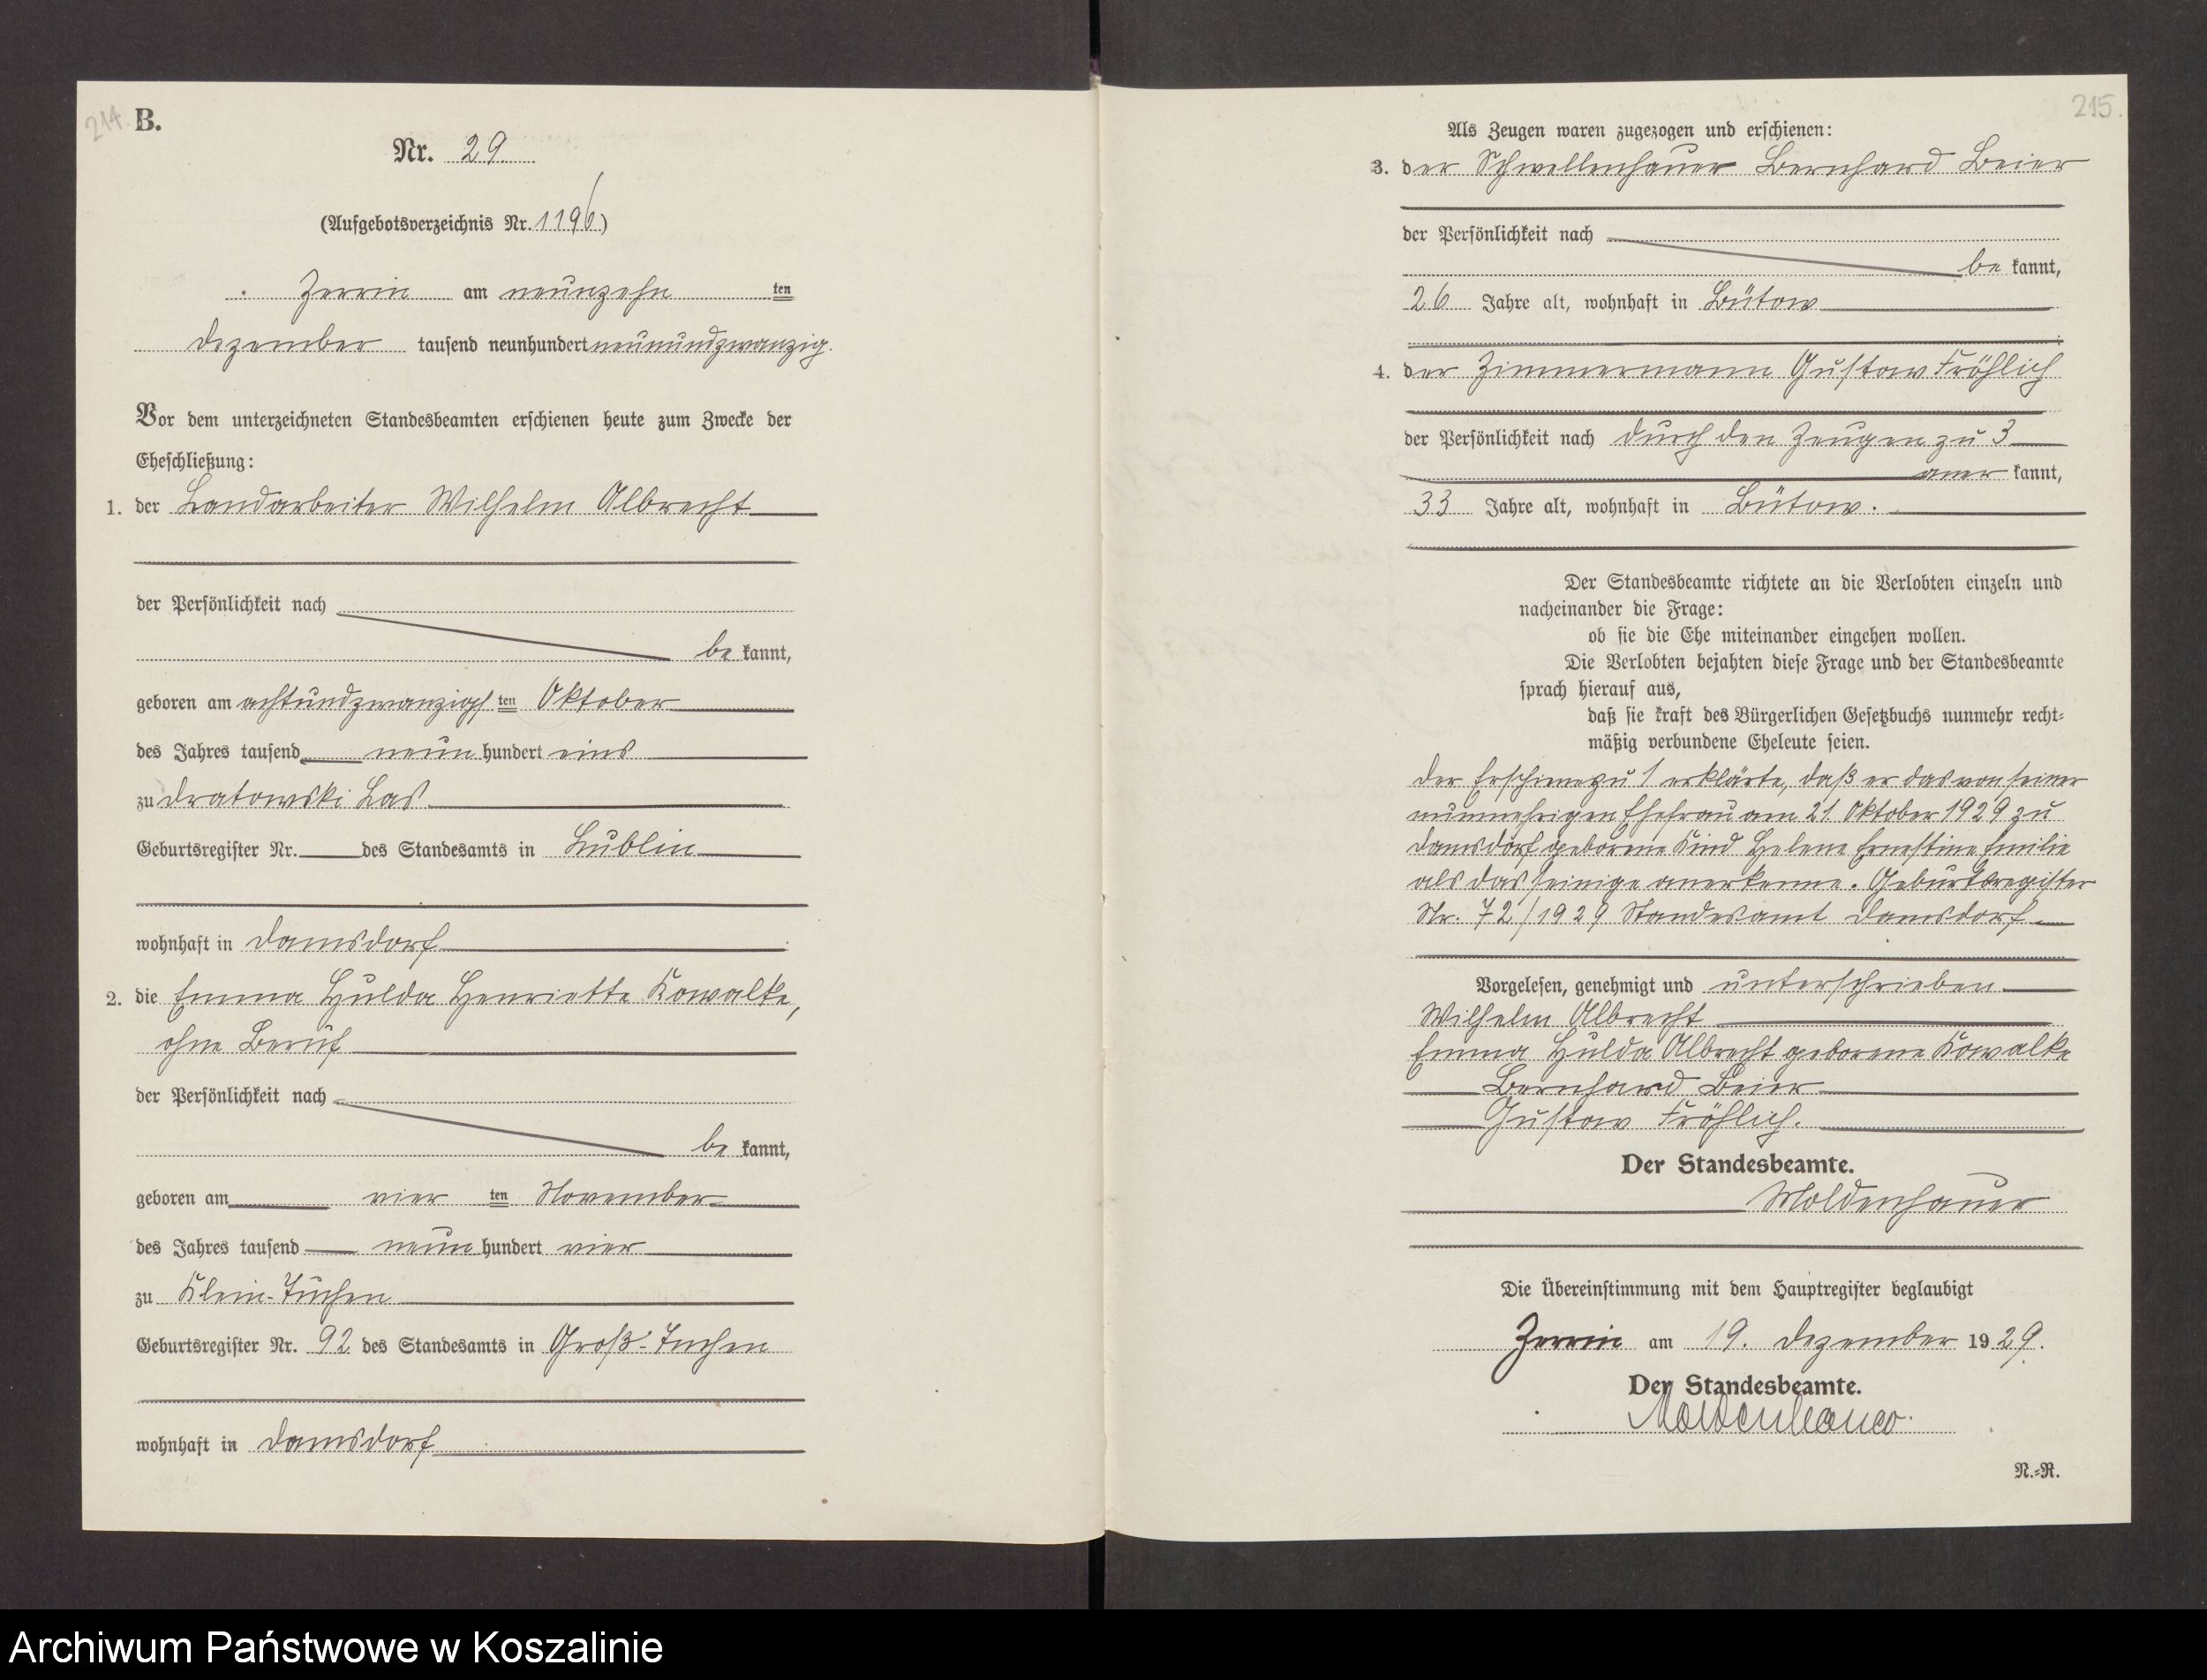 214.
B.
Nr. 29
(Aufgebotsverzeichnis Nr. 1196)
Zerrin am neunzehn ten
Dezember tausend neunhundert neunundzwanzig.
Vor dem unterzeichneten Standesbeamten erschienen heute zum Zwecke der
Eheschließung:
1. der Landarbeiter Wilhelm Albrecht
der Persönlichkeit nach
be kannt,
geboren am achtundzwanzigs ten Oktober
des Jahres tausend neun hundert eins
zu Dratowski Las
Geburtsregister Nr. des Standesamts in Lublin
wohnhaft in Damsdorf
2. die Emma Hulda Henriette Kowalke,
ohne Beruf
der Persönlichkeit nach
be kannt,
geboren am vier ten November
des Jahres tausend neun hundert vier
zu Klein-Tuchen
Geburtsregister Nr. 92 des Standesamts in Groß-Tuchen
wohnhaft in Damsdorf
215.
Als Zeugen waren zugezogen und erschienen:
3. der Schwellenhauer Bernhard Beier
der Persönlichkeit nach
be kannt,
26 Jahre alt, wohnhaft in Bütow
4. der Zimmermann Gustav Fröhlich
der Persönlichkeit nach durch den Zeugen zu 3
aner kannt,
33 Jahre alt, wohnhaft in Bütow.
Der Standesbeamte richtete an die Verlobten einzeln und
nacheinander die Frage:
ob sie die Ehe miteinander eingehen wollen.
Die Verlobten bejahten diese Frage und der Standesbeamte
sprach hierauf aus,
daß sie kraft des Bürgerlichen Gesetzbuchs nunmehr recht-
mäßig verbundene Eheleute seien.
Der Erschiene zu 1 erklärte, daß er das von seiner
nunmehrigen Ehefrau am 21. Oktober 1929 zu
Damsdorf geborene Kind Helene Ernestine Emilie
als das seinige anerkenne. Geburtsregister
Nr. 72/1929 Standesamt Damsdorf
Vorgelesen, genehmigt und unterschrieben
Wilhelm Albrecht
Emma Hulda Albrecht geborene Kowalke
Bernhard Beier
Gustav Fröhlich.
Der Standesbeamte.
Moldenhauer
Die Übereinstimmung mit dem Hauptregister beglaubigt
Zerrin am 19. Dezember 1929.
Der Standesbeamte.
Moldenhauer.
N.-R.
Archiwum Państwowe w Koszalinie